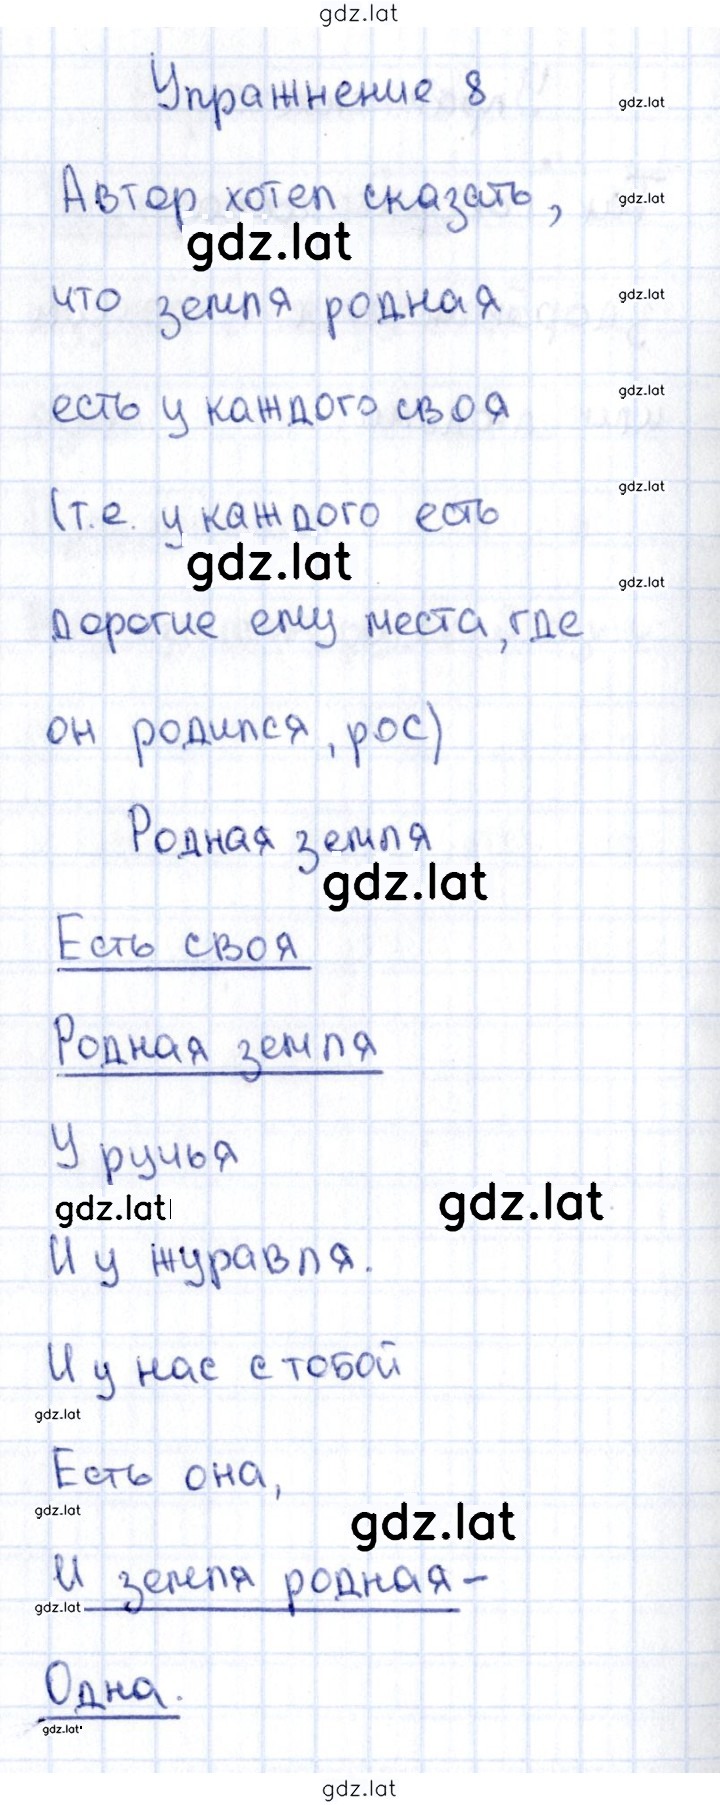 gdz.lat
Упражнение 8
gdz.lat
Автор хотел сказать,
gdz.lat
gdz.lat
что земля родная
gdz.lat
есть у каждого своя
gdz.lat
(т.е. у каждого есть
gdz.lat
gdz.lat
gdz.lat
дорогие ему места, где
он родился, рос)
Родная земля
gdz.lat
Есть своя
Родная земля
У ручья
gdz.lat
gdz.lat
И у журавля.
И у нас с тобой
gdz.lat
Есть она,
gdz.lat
gdz.lat
И земля родная-
gdz.lat
Одна.
gdz.lat
gdz.lat